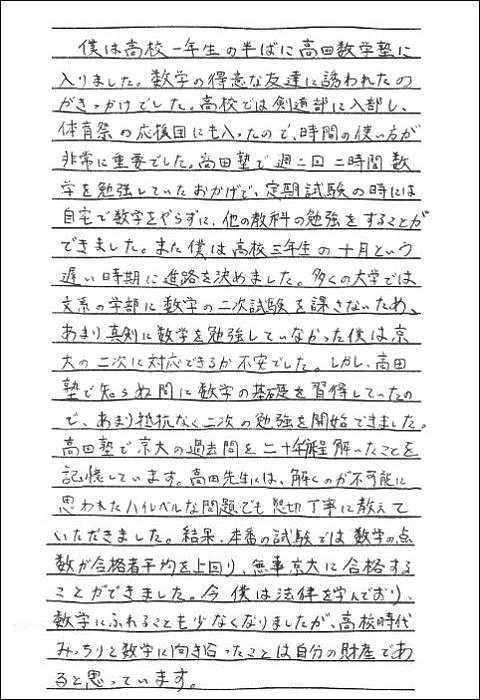 僕は高校一年生の半ばに高田数学塾に
入りました。数学の得意な友達に誘われたの
がきっかけでした。高校では剣道部に入部し、
体育祭の応援団にも入ったので、時間の使い方が
非常に重要でした。高田塾で週二回二時間数
学を勉強していたおかげで、定期試験の時には
自宅で数学をやらずに、他の教科の勉強をすることが
できました。また僕は高校三年生の十月という
遅い時期に進路を決めました。多くの大学では
文系の学部に数学の二次試験を課さないため、
あまり真剣に数学を勉強していなかった僕は京
大の二次に対応できるか不安でした。しかし、高田
塾で知らぬ間に数学の基礎を習得していたの
で、あまり抵抗なく二次の勉強を開始できました。
高田塾で京大の過去問を二十年程解いたことを
記憶しています。高田先生には、解くのが不可能に
思われたハイレベルな問題でも懇切丁寧に教えて
いただきました。結果、本番の試験では数学の点
数が合格者平均を上回り、無事京大に合格する
ことができました。今僕は法律を学んでおり、
数学にふれることも少なくなりましたが、高校時代
みっちりと数学に向き合ったことは自分の財産であ
ると思っています。